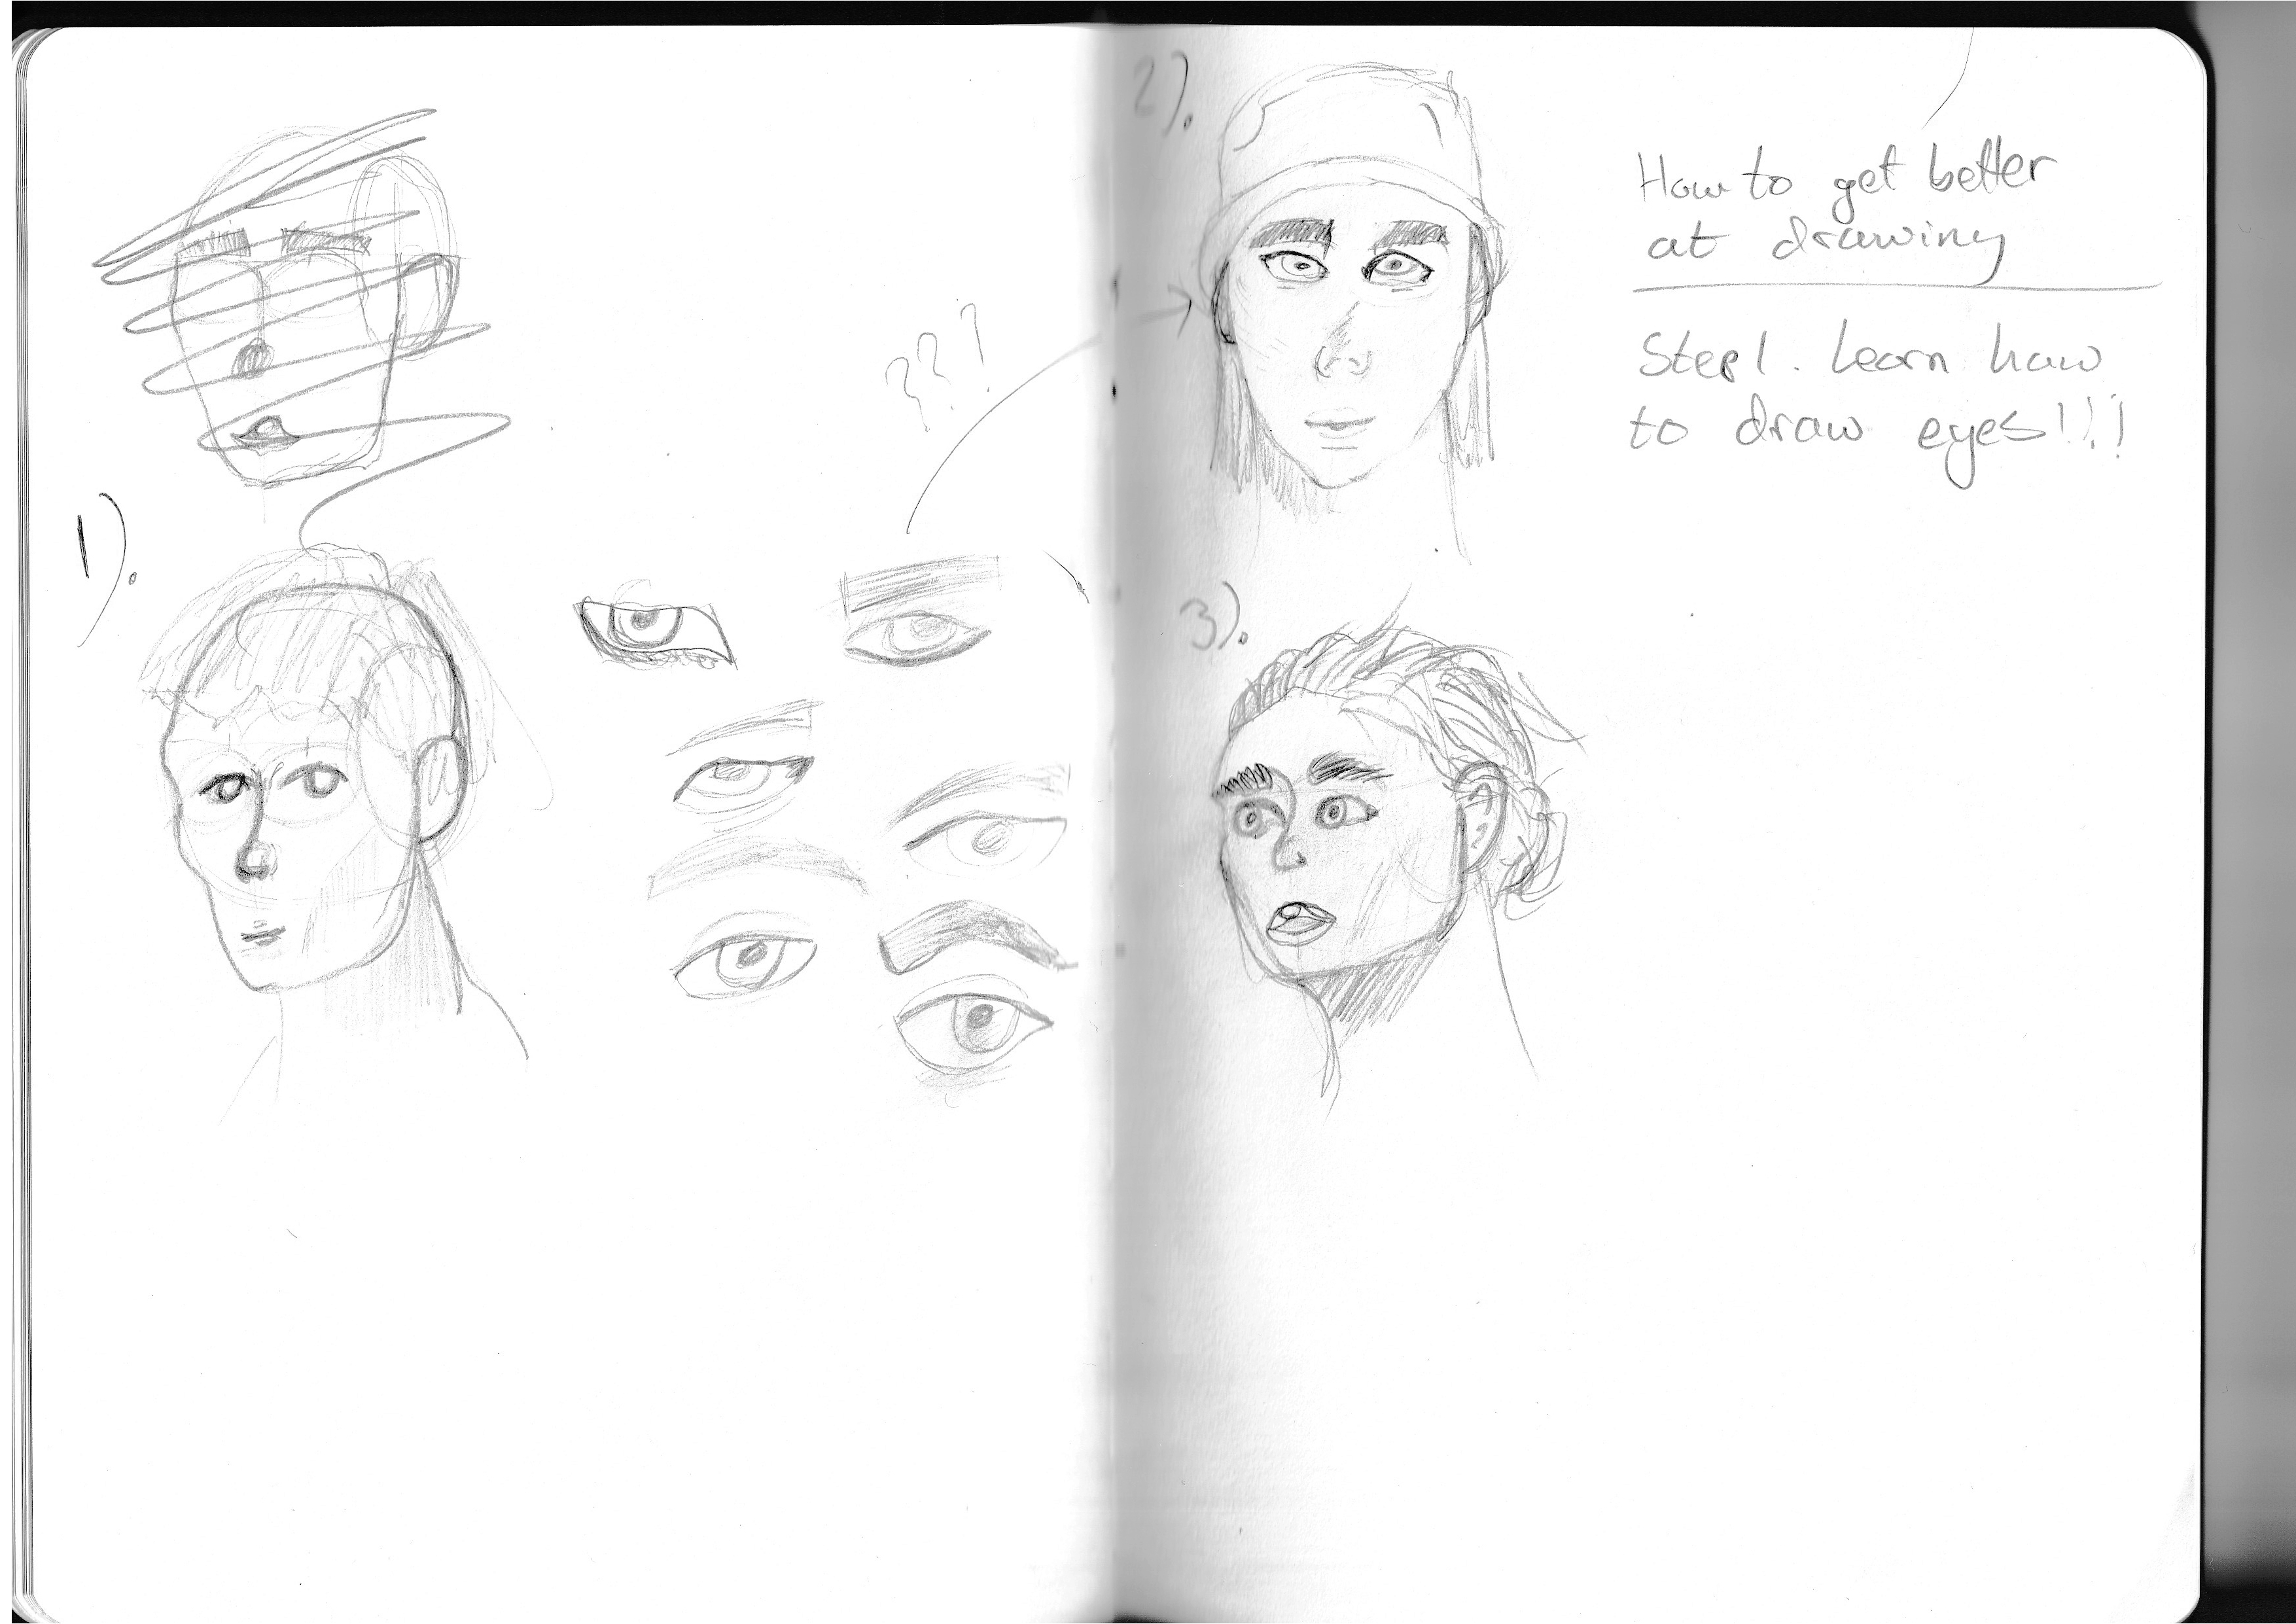 1).
???
2).
How to get better
at drawing
Step 1. Learn how
to draw eyes!!!
3).